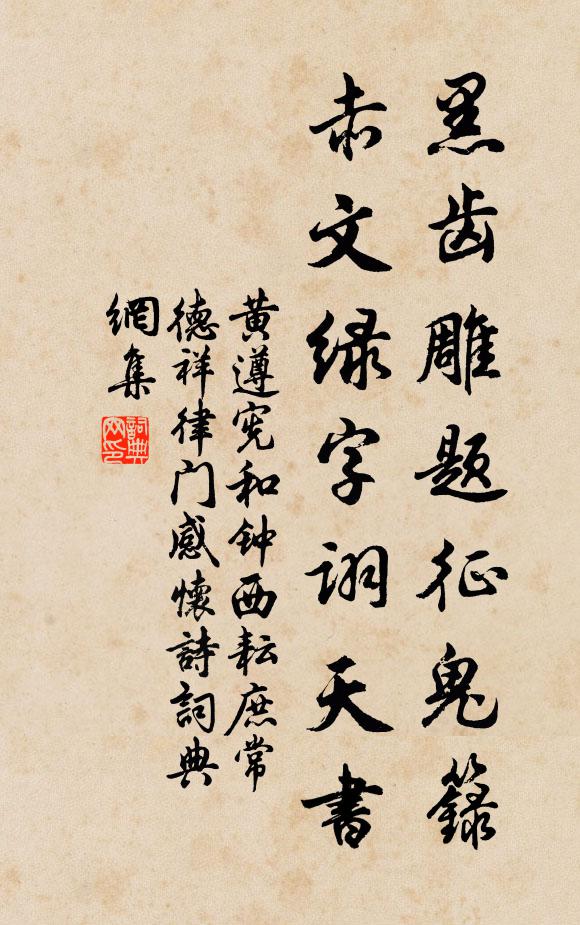 黑齿雕题征鬼籙
赤文绿字诩天書
黄遵宪和钟西耘庶常
德祥律门感懷詩詞典
網集
詞典网印